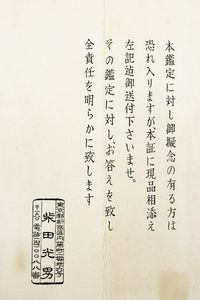 本鑑定に対し御疑念の有る方は
恐れ入りますが本証に現品相添え
左記迄御送付下さいませ。
その鑑定に対し、お答えを致し
全責任を明らかに致します
東京都新宿区
柴田光男
電話